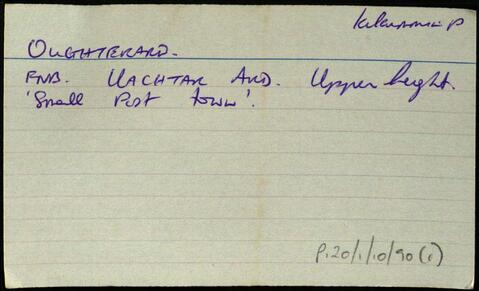 Kilcummin P
OUGHTERARD.
FNB. UACHTAR ARD. Upper height.
'Small Post town'.
P.20/1/10/90(i)